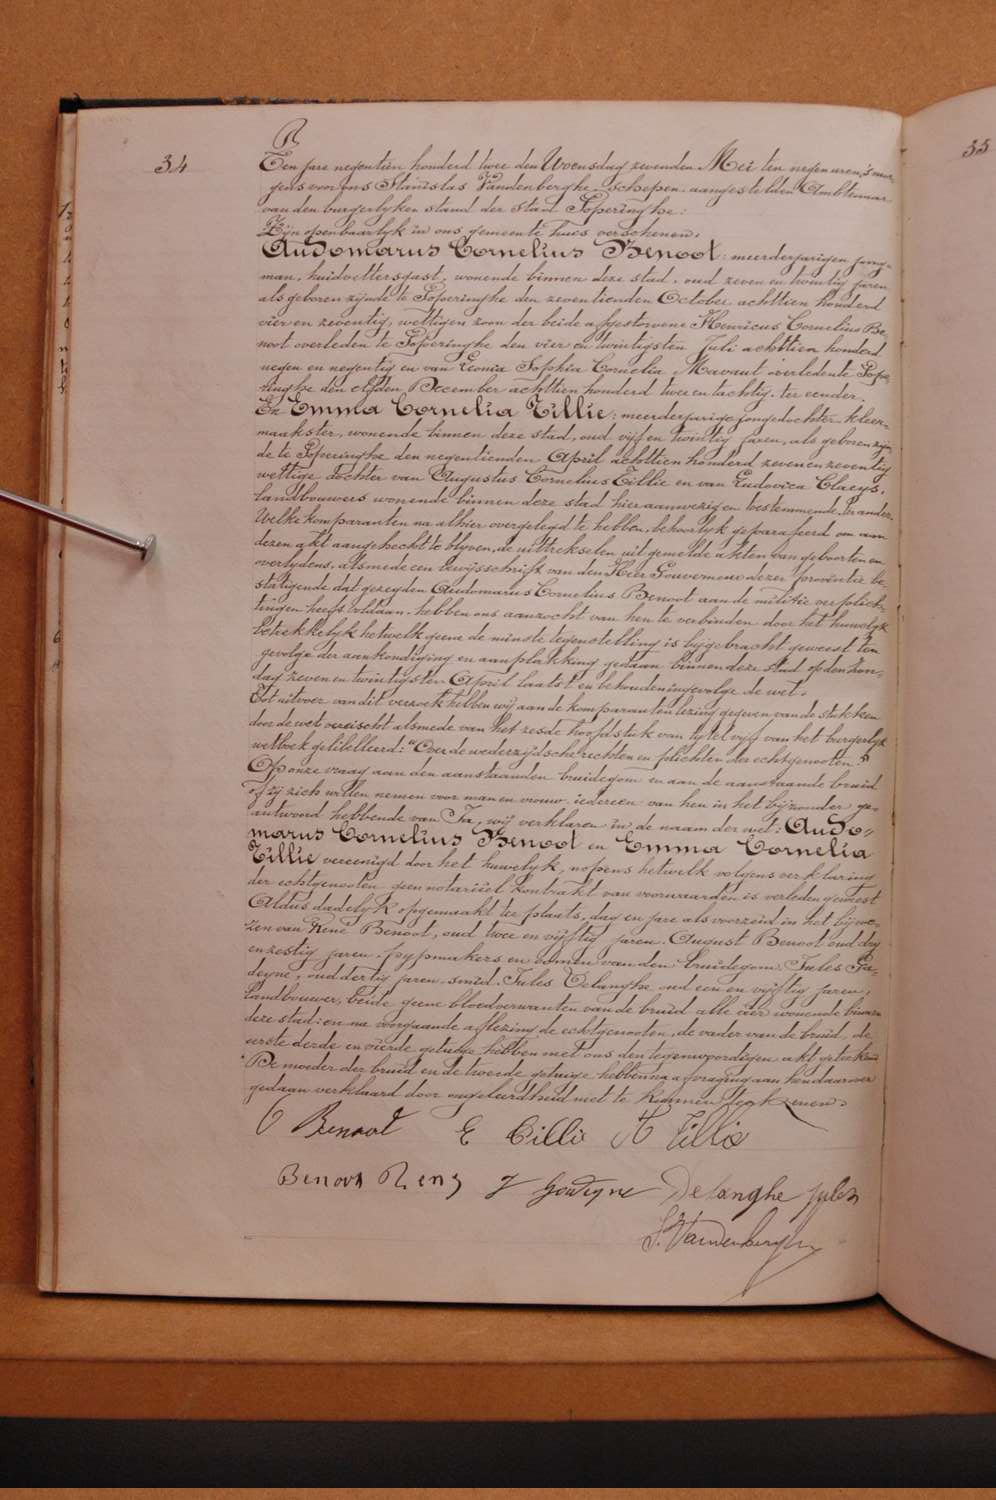 34
35
B
Ten jare negentien honderd twee den Woensdag zevenden Mei ten negen uren, 's mor-
gens voor ons Stanislas Vandenberghe schepen aangestelden Ambtenaar
van den burgerlyken stand der stad Poperinghe:
Zijn openbaarlyk in ons gemeente huis verschenen:
Audomarus Cornelius Benoot: meerderjarigen jong-
man, huidvettersgast, wonende binnen deze stad, oud zeven en twintig jaren
als geboren zijnde te Poperinghe den zeventienden October achttien honderd
vier en zeventig, wettigen zoon der beide afgestorvene Henricus Cornelius Be-
noot overleden te Poperinghe den vier en twintigsten Juli achttien honderd
negen en negentig en van Leonia Sophia Cornelia Mavaut overledente Pope-
ringhe den elfden December achttien honderd twee en tachtig. ter eender.
En Emma Cornelia Tillie: meerderjarige jongedochter kleer-
maakster, wonende binnen deze stad, oud vijf en twintig jaren, als geboren zijn-
de te Poperinghe den negentienden April achttien honderd zeven en zeventig
wettige dochter van Augustus Cornelius Tillie en van Ludovica Claeys,
landbouwers wonende binnen deze stad hier aanwezig en bestemmende ter ander.
Welke komparanten na alhier overgelegd te hebben, behoorlyk geparafeerd om aan
dezen akt aangehecht te blyven, de uittrekselen uit gemelde akten van geboorten en
overlydens, alsmede een bewysschrift van den Heer Gouverneur dezer provintie be-
statigende dat gezeyden Audomarus Cornelius Benoot aan de militie verplich-
tingen heeft voldaan. hebben ons aanzocht van hen te verbinden door het huwelyk
betrekkelyk hetwelk geene de minste tegenstelling is bijgebracht geweest ten
gevolge der aankondiging en aanplakking gedaan binnen deze stad op den Zon-
dag zeven en twintigsten April laatst en behouden ingevolge de wet.
Tot uitvoer van dit verzoek hebben wij aan de komparanten lezing gegeven van de stukken
door de wet vereischt alsmede van het zesde hoofdstuk van tytel vyf van het burgerlyk
wetboek getitelleerd: "Over de wederzijdsche rechten en plichten der echtgenooten."
Op onze vraag aan den aanstaanden bruidegom en aan de aanstaande bruid
of zij zich willen nemen voor man en vrouw. iedereen van hen in het bijzonder ge-
antwoord hebbende van Ja, wij verklaren in de naam der wet: Audo-
marus Cornelius Benoot en Emma Cornelia
Tillie vereenigd door het huwelyk, nopens hetwelk volgens verklaring
der echtgenooten geen notariëel kontrakt van voorwaarden is verleden geweest
Aldus dadelyk opgemaakt ter plaats, dag en jare als voorzeid in het bijwe-
zen van René Benoot, oud twee en vijftig jaren. August Benoot oud dry
en zestig jaren. pypmakers en oomen van den bruidegom. Jules Go-
deyne, oud dertig jaren smid. Jules Delanghe oud een en vijftig jaren,
landbouwer, beide geene bloedverwanten van de bruid alle vier wonende binnen
deze stad: en na voorgaande aflezing de echtgenooten, de vader van de bruid, de
eerste derde en vierde getuige hebben met ons den tegenwoordigen akt geteekend
De moeder der bruid en de tweede getuige hebben na afvraging aan hen daarover
gedaan verklaard door ongeleerdheid niet te kunnen teekenen.
O Benoot E Tillie A Tillie
Benoot Reny J Godeyne Delanghe Jules
S. Vandenberghe